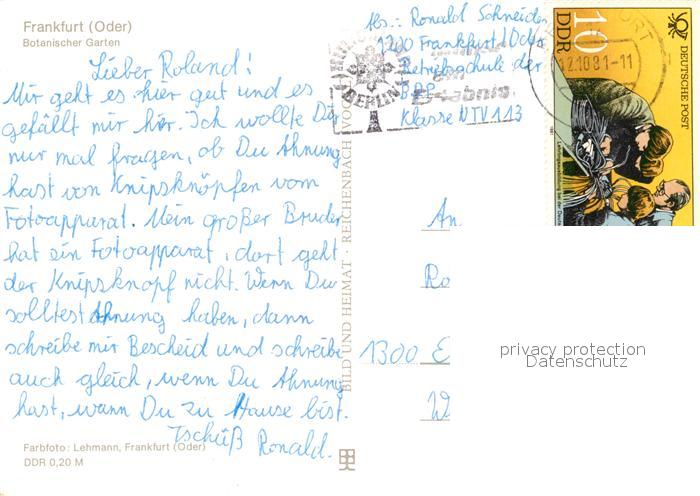 Frankfurt (Oder)
Botanischer Garten
Lieber Roland!
Mir geht es hier gut und es
gefällt mir hir. Ich wollte Dir
nur mal fragen, ob Du Ahnung
hast von Knipsknöpfen vom
Fotoapparat. Mein großer Bruder
hat ein Fotoapparat, dort geht
der Knipsknopf nicht. Wenn Du
solltest Ahnung haben, dann
schreibe mir Bescheid und schreibe
auch gleich, wenn Du Ahnung
hast, wann Du zu Hause bist.
Tschüß Ronald.
Farbfoto: Lehmann, Frankfurt (Oder)
DDR 0,20 M
BILD UND HEIMAT · REICHENBACH VOG
Abs.: Ronald Schneider
1200 Frankfurt/Oder
Betriebsschule der
Klasse NTV 113
BERLIN
12.10.81-11
10
DDR
DEUTSCHE POST
1981
An
Ro
1300 E
W
privacy protection
Datenschutz